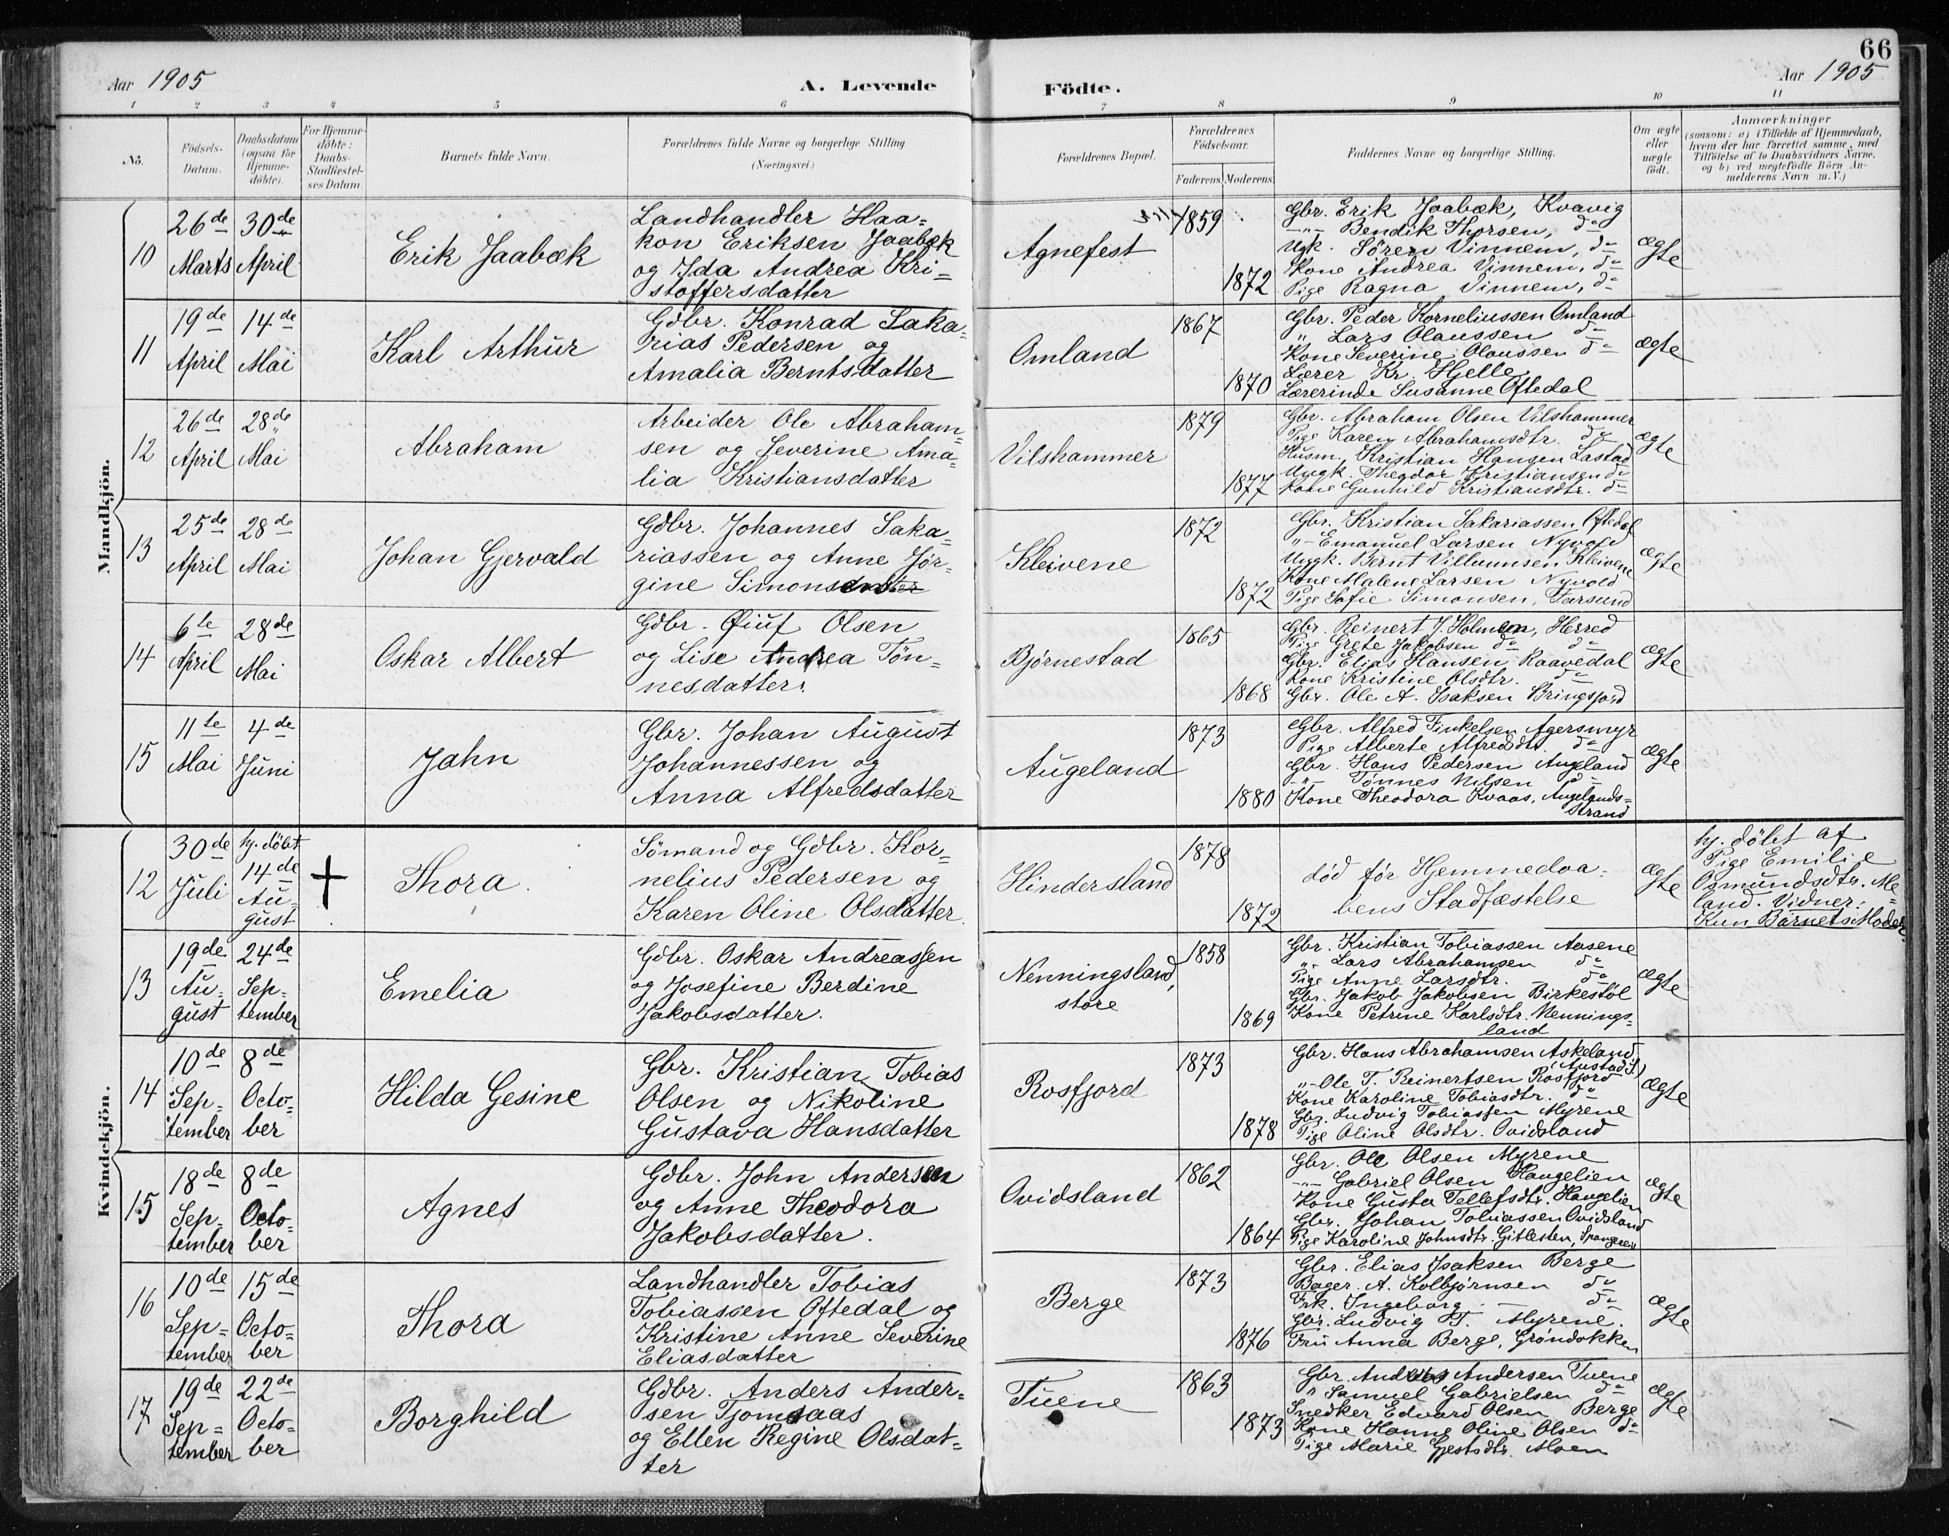 66
Aar 1905
A. Levende
Födte.
Aar 1905
1 2 3 4 5 6 7 8 9 10 11
No.
Födsels-
Datum.
Daabsdatum
(ogsaa for
Hjemme-
döbte).
For Hjemme-
döbte:
Daabs-
Stadfæstel-
ses Datum.
Barnets fulde Navn.
Forældrenes fulde Navne og borgerlige Stilling.
(Næringsvei.)
Forældrenes Bopæl.
Forældrenes
Födselsaar.
Faderens.
Moderens.
Faddernes Navne og borgerlige Stilling.
Om ægte
eller
uægte
födt.
Anmærkninger
(saasom: a) i Tilfælde af Hjemmedaab,
hvem der har forrettet samme, med
Tilföielse af to Daabsvidners Navne,
og b) ved uægtefödte Börn An-
melderens Navn m. V.)
Mandkjön.
10
26de
Marts
30de
April
Erik Jaabæk
Landhandler Haa-
kon Eriksen Jaabæk
og Ida Andrea Kri-
stoffersdatter
Agnefest
1859
1872
Gbr. Erik Jaabæk, Kvavig
-"- Bendik Thorsen, do
Ugk. Sören Vinnem, do
Kone Andrea Vinnem, do
Pige Ragna Vinnem, do
ægte
11
19de
April
14de
Mai
Karl Arthur
Gdbr. Konrad Saka-
rias Pedersen og
Amalia Berntsdatter
Omland
1867
1870
Gbr. Peder Korneliussen Omland
" Lars Olaussen do
Kone Severine Olaussen do
Lærer Kr. Hjelle
Lærerinde Susanne Oftedal
ægte
12
26de
April
28de
Mai
Abraham
Arbeider Ole Abraham-
sen og Severine Ama-
lia Kristiansdatter
Vilshammer
1879
1877
Gbr. Abraham Olsen Vilshammer
Pige Karen Abrahamsdtr. do
Husm. Kristian Hansen Lastad
Ungk. Theodor Kristiansen do
Kone Gunhild Kristiansdtr. do
ægte
13
25de
April
28de
Mai
Johan Gjervald
Gdbr. Johannes Saka-
riassen og Anne Jör-
gine Simonsdatter
Kleivene
1872
1872
Gbr. Kristian Sakariassen Oftedal
"- Emanuel Larsen Nyvold
Ungk. Bernt Villumsen Kleivene
Kone Malene Larsen Nyvold
Pige Sofie Simonsen, Farsund
ægte
14
6te
April
28de
Mai
Oskar Albert
Gdbr. Øiuf Olsen
og Lise Andrea Tön-
nesdatter.
Bjørnestad
1865
1868
Gbr. Reinert J. Holmen, Herred
Pige Grete Jakobsen do do
Gbr. Elias Hansen Raavedal
Kone Kristine Olsdtr. do
Gbr. Ole A. Isaksen Bringsfjord
ægte
15
11te
Mai
4de
Juni
Jahn
Gbr. Johan August
Johannessen og
Anna Alfredsdatter
Augeland
1873
1880
Gbr. Alfred Finkelsen Agersmyr
Pige Alberte Alfredsdtr. do
Gbr. Hans Pedersen Augland
-"- Tønnes Nilsen do
Kone Theodora Kvaas, Augelands-
strand
ægte
Kvindekjön.
12
30de
Juli
hj. döbt
14de
Au-
gust
+
Thora.
Sömand og Gdbr. Kor-
nelius Pedersen og
Karen Oline Olsdatter.
Hindersland
1878
1872
død før Hjemmedaa-
bens Stadfæstelse
ægte
hj. döbt af
Pige Emilie
Osmundsdtr. Me-
land. Vidner:
Kun Barnets Moder.
13
19de
Au-
gust
24de
Sep-
tember
Emelia
Gdbr. Oskar Andreassen
og Josefine Berdine
Jakobsdatter.
Nenningsland,
store
1858
1869
Gbr. Kristian Tobiassen Aasene
"- Lars Abrahamsen do
Pige Anne Larsdtr. do
Gbr. Jakob Jakobsen Birkestöl
Kone Petrine Karlsdtr. Nennings-
land
ægte
14
10de
Sep-
tember
8de
Octo-
ber
Hilda Gesine
Gbr. Kristian Tobias
Olsen og Nikoline
Gustava Hansdatter
Rosfjord
1873
1878
Gbr. Hans Abrahamsen Askeland
"- Ole T. Reinertsen Rosfjord
Kone Karoline Tobiasdtr. do
Gbr. Ludvig Tobiassen Myrene
Pige Oline Olsdtr. Ovidsland
ægte
15
18de
Sep-
tember
8de
Octo-
ber
Agnes
Gdbr. John Andersen
og Anne Theodora
Jakobsdatter.
Ovidsland
1862
1864
Gbr. Ole Olsen Myrene
-"- Gabriel Olsen Haugelien
Kone Gusta Tellefsdtr. Haugelien
Gbr. Johan Tobiassen Ovidsland
Pige Karoline Johnsdtr. Gitlesten, Spangereid
ægte
16
10de
Sep-
tember
15de
Octo-
ber
Thora
Landhandler Tobias
Tobiassen Oftedal og
Kristine Anne Severine
Eliasdatter
Berge
1873
1876
Gbr. Elias Isaksen Berge
Bager. A. Kolbjørnsen do
Frk. Ingeborg -"- do
Gbr. Ludvig T. Myrene.
Fru Anna Berge, Grøndokken
ægte
17
19de
Sep-
tember
22de
Octo-
ber
Borghild
Gdbr. Anders Ander-
sen Tjomsaas
og Ellen Regine Olsdat-
ter
Tuene
1863
1873
Gbr. Andreas Andersen Tuene
" Samuel Gabrielsen do
Snedker Edvard Olsen Berge
Kone Hanne Oline Olsen do
Pige Marie Gjestsdtr. Moen
ægte